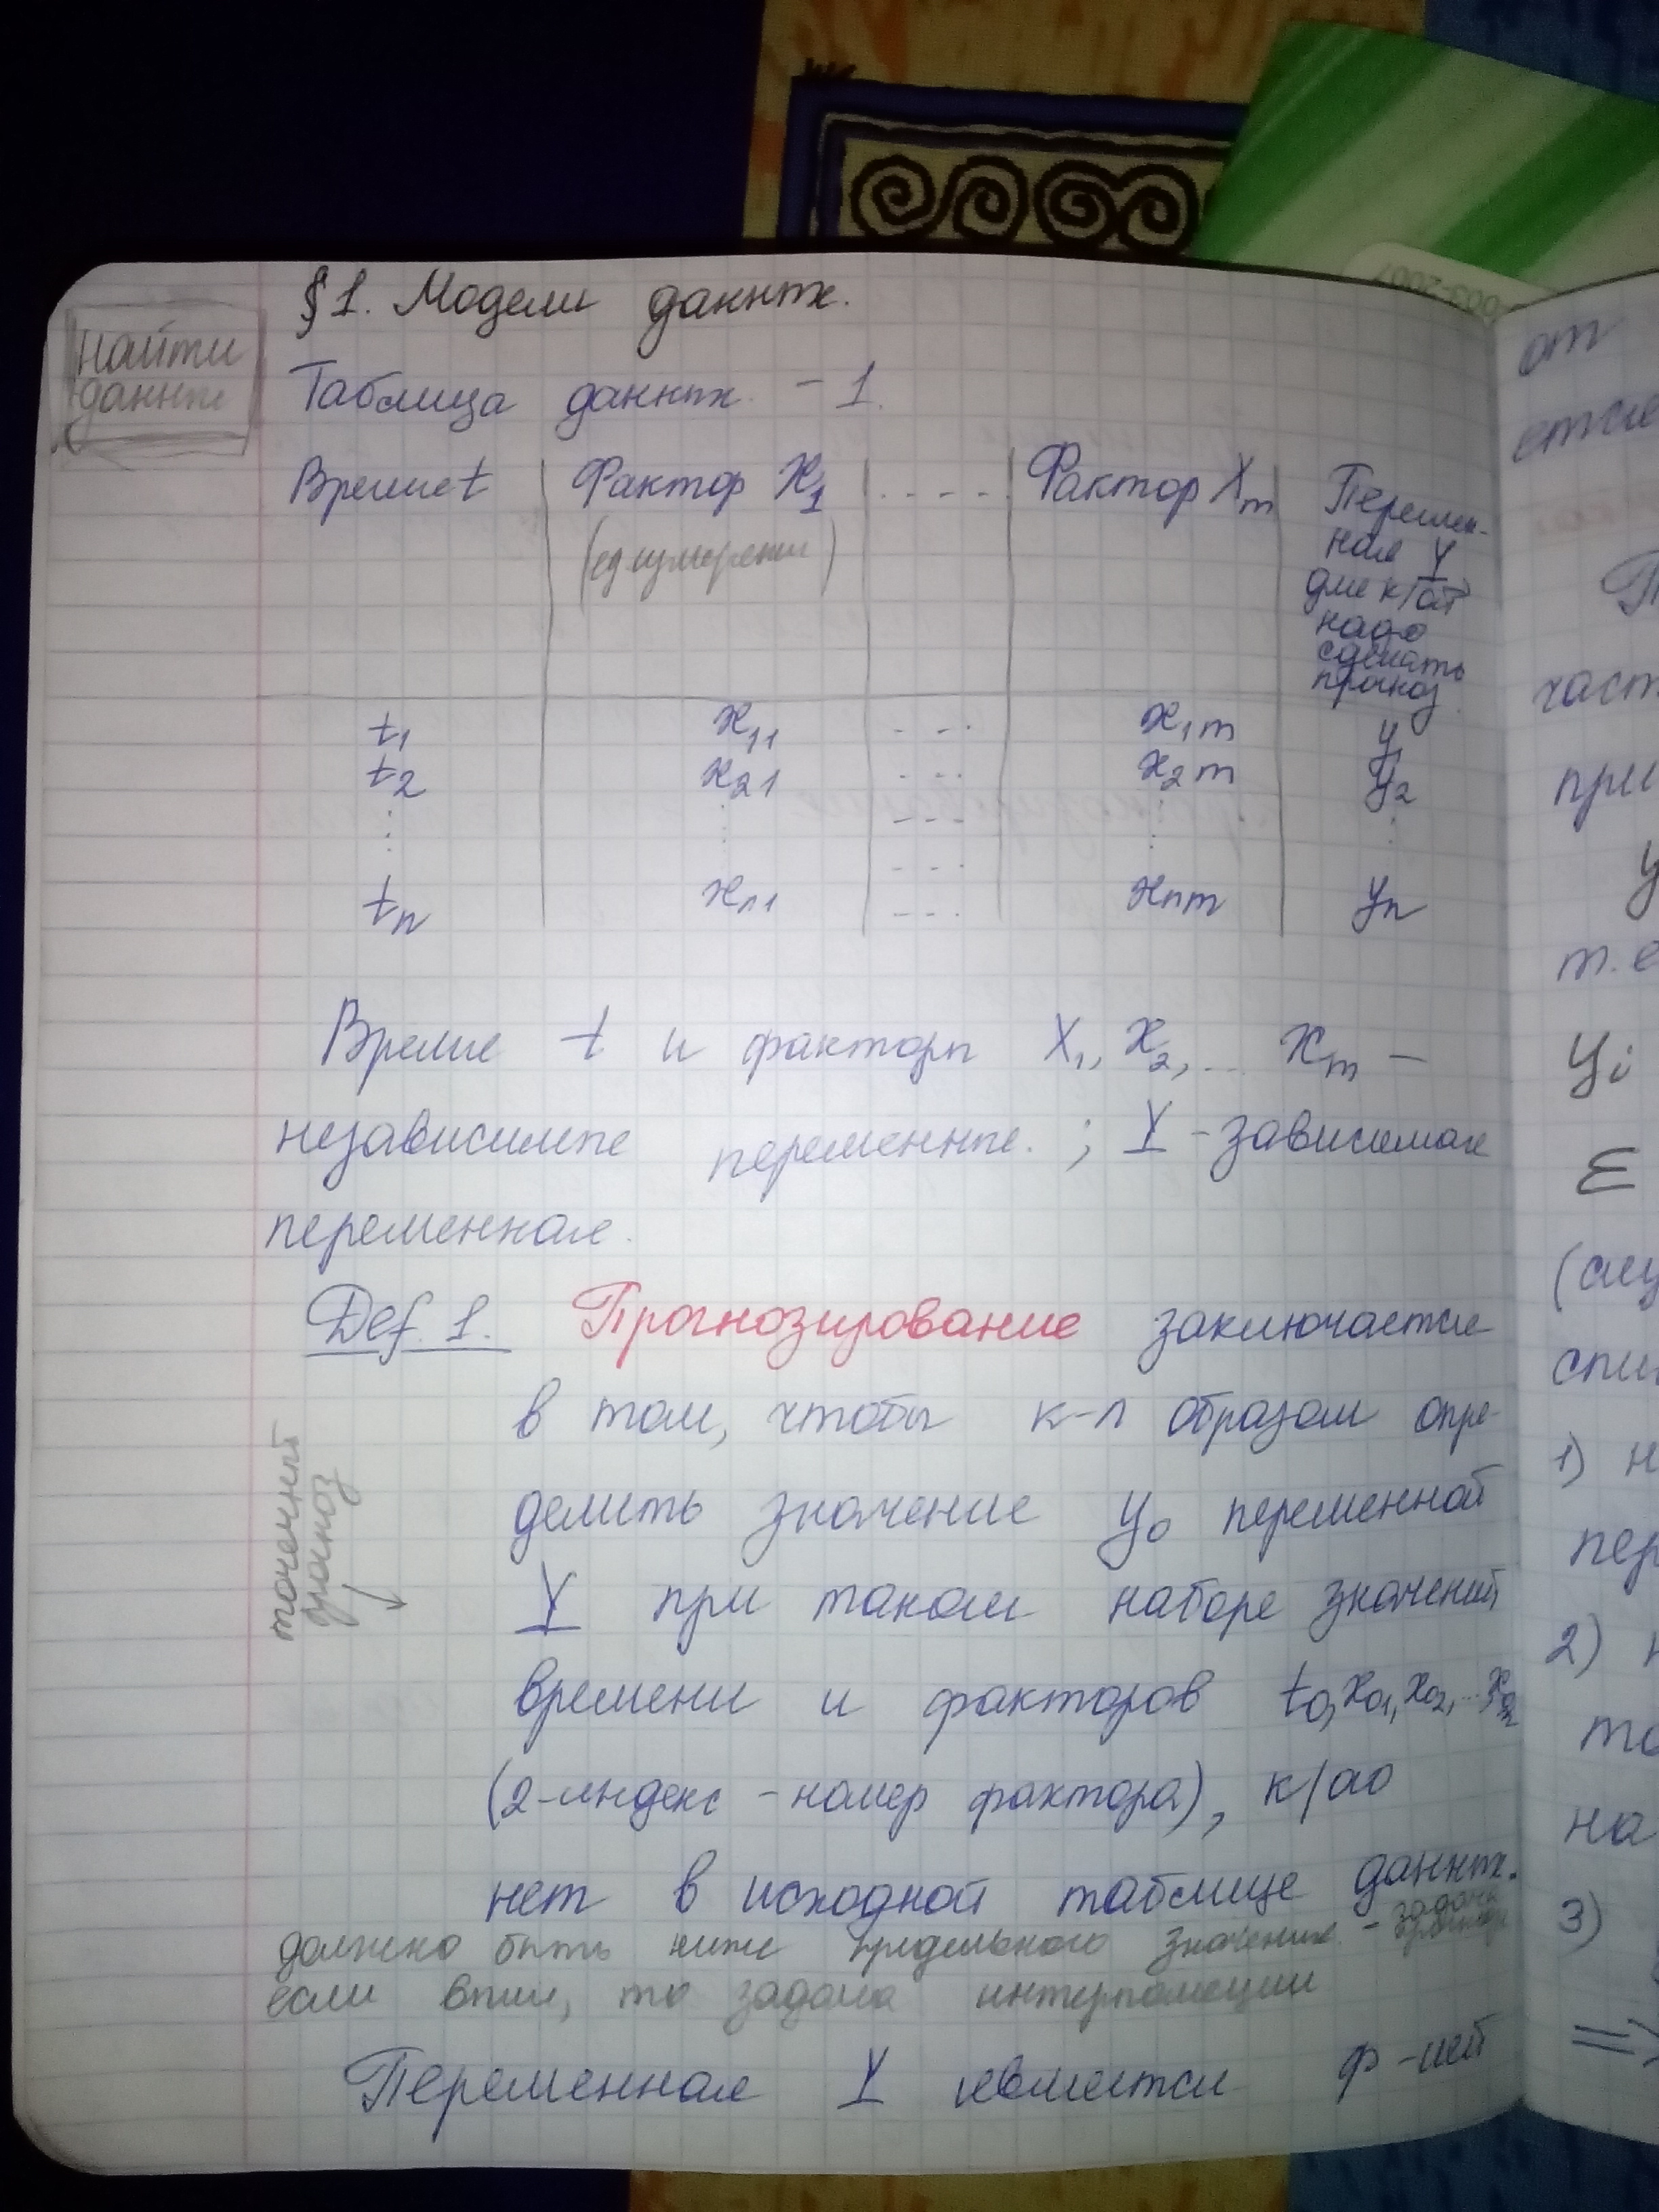 §1. Модели данных.
найти
данные
Таблица данных - 1.
Время t | Фактор X₁ | . . . . | Фактор Xm | Перемен-
(ед измерения)
ная Y
для к/ой
надо
сделать
прогноз
t₁ x₁₁ - - - x₁m y₁
t₂ x₂₁ - - - x₂m y₂
⋮ ⋮ - - - ⋮ ⋮
tn xn1 - - - xnm yn
Время t и факторы X₁, X₂, ... Xm –
независимые переменные. ; Y - зависимая
переменная.
Def. 1. Прогнозирование заключается
в том, чтобы к-л образом опре-
делить значение y₀ переменной
точечный
прогноз
Y при таком наборе значений
времени и факторов t₀, x₀₁, x₀₂, ... x₀m
(2-индекс - номер фактора), к/ао
нет в исходной таблице данных.
должно быть ниже предельного значения - задача
если выше, то задача интерполяции
Переменная Y является ф-ией
от
част
при
y
т.е
yi
ε
1) н
пер
2) н
то
на
3)
=>